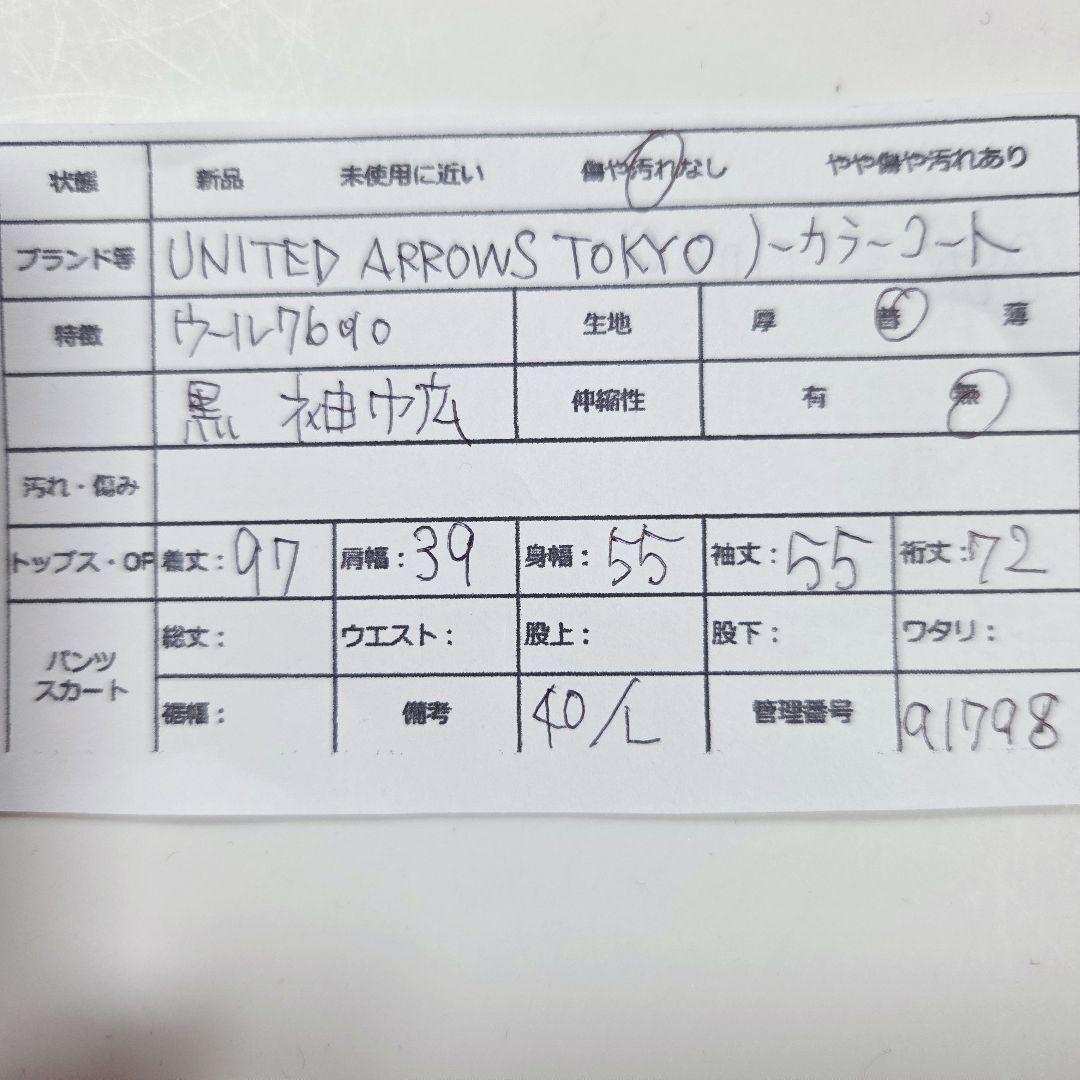 状態 新品 未使用に近い 傷や汚れなし やや傷や汚れあり
ブランド等 UNITED ARROWS TOKYO ノーカラーコート
特徴 ウール7690 生地 厚 普 薄
黒 袖巾広 伸縮性 有 無
汚れ・傷み
トップス・OP 着丈：97 肩幅：39 身幅：55 袖丈：55 裄丈：72
パンツ スカート 総丈： ウエスト： 股上： 股下： ワタリ：
裾幅： 備考 40/L 管理番号 91798